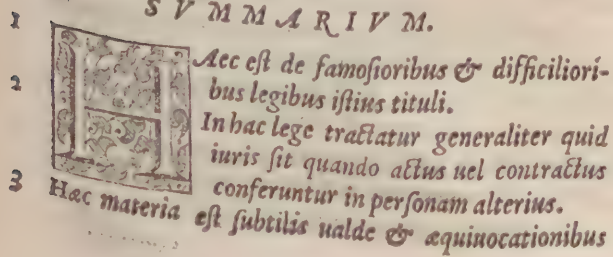 SVMMARIVM.
1 HAec eſt de famoſioribus & difficiliori-
2 bus legibus iſtius tituli.
In hac lege tractatur generaliter quid
iuris ſit quando actus uel contractus
conferuntur in perſonam alterius.
3 Hæc materia eſt ſubtilis ualde & æquiuocationibus